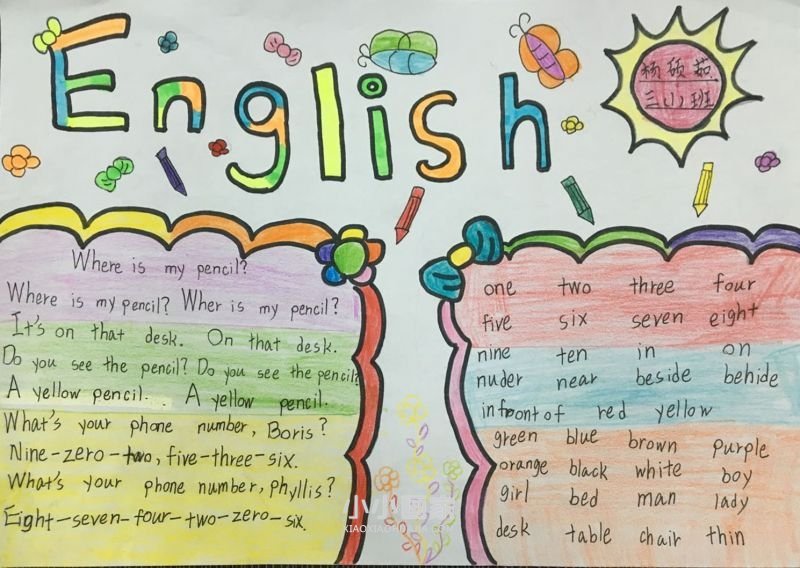 English
杨硕茹
三(1)班
Where is my pencil?
Where is my pencil? Wher is my pencil?
It's on that desk. On that desk.
Do you see the pencil? Do you see the pencil?
A yellow pencil. . A yellow pencil.
What's your phone number, Boris?
Nine-zero-two, five-three-six.
What's your phone number, phyllis?
Eight-seven-four-two-zero-six.
one two three four
five six seven eight
nine ten in on
nuder near beside behide
infront of red yellow
green blue brown purple
orange black white boy
girl bed man lady
desk table chair thin